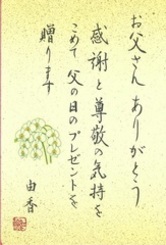 お父さん ありがとう
感謝と尊敬の気持を
こめて 父の日のプレゼントを
贈ります
由香